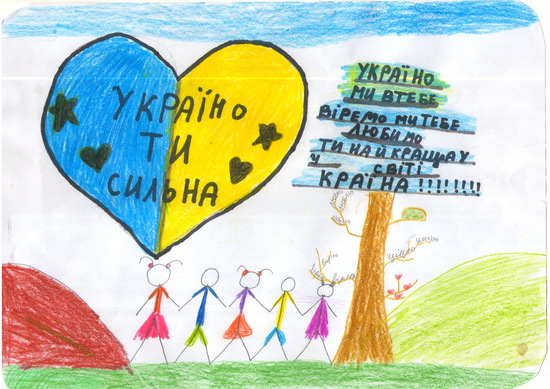 УКРАЇНО
ТИ
СИЛЬНА
УКРАЇНО
МИ ВТЕБЕ
ВІРЕМО МИ ТЕБЕ
ЛЮБИМО
ТИ НАЙКРАЩА У
У СВІТІ
КРАЇНА !!!!!!!!